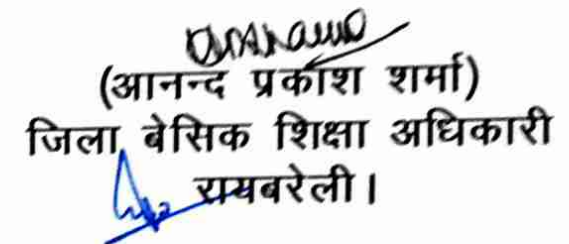 (आनन्द प्रकाश शर्मा)
जिला बेसिक शिक्षा अधिकारी
रायबरेली।